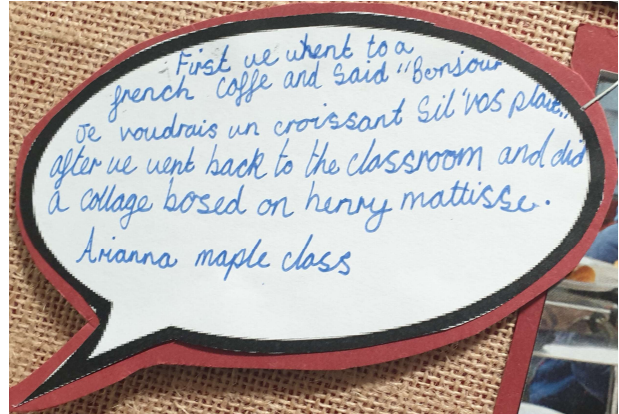 First we whent to a
french coffe and said "Bonjour
Je voudrais un croissant Sil'vos plait"
after we went back to the classroom and did
a collage bosed on henry mattisse.
Arianna maple class